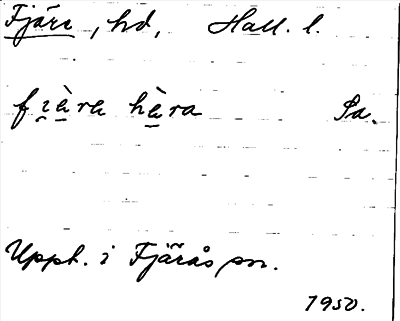 Fjäre, hd, Hall. l.
fı̯ä̀ra hä̀ra Sa.
Uppt. i Fjärås sn.
1950.